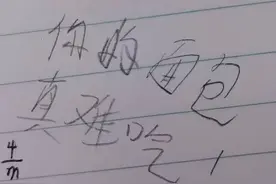 你的面包
真难吃!
4/m